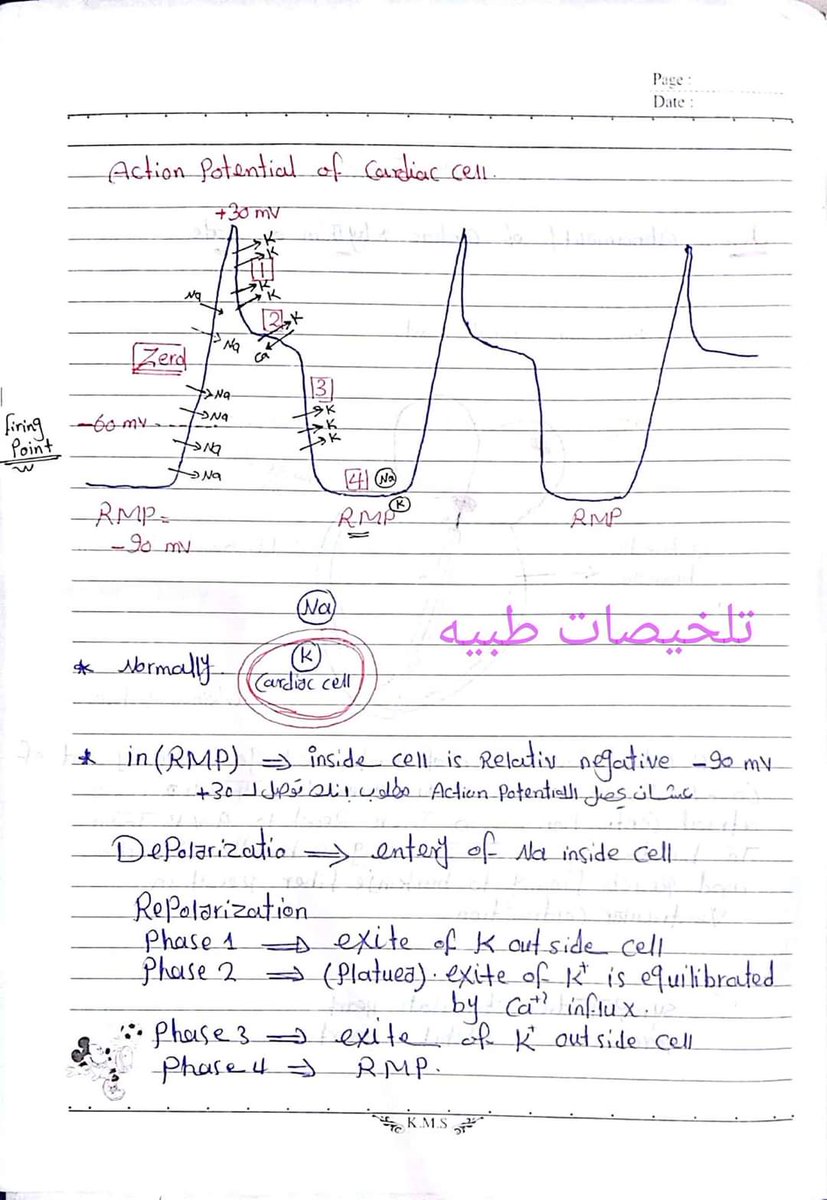 Page :
Date :
Action Potential of Cardiac cell.
+30 mV
K
K
1
K
K
Na
2
K
Na
Ca
Zero
3
Na
K
Na
K
K
-60 mV
Firing
Point
Na
Na
4
Na
K
RMP=
-90 mV
RMP
RMP
Na
تلخيصات طبيه
* Normally
K
Cardiac cell
* in (RMP) ⇒ inside cell is Relativ negative -90 mV
عشان يحصل Action Potential مطلوب توصل لـ +30
Depolarizatio ⇒ entery of Na inside cell
Repolarization
Phase 1 ⇒ exite of K outside cell
Phase 2 ⇒ (Platuea). exite of K+ is equilibrated
by Ca+2 influx.
Phase 3 ⇒ exite of K+ outside cell
Phase 4 ⇒ RMP.
K.M.S